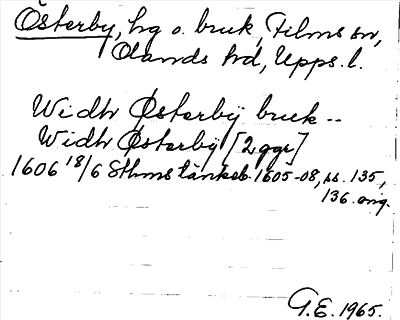 Österby, hg o. bruk, Films sn,
Olands hd, Upps. l.
Widh Østerbÿ bruk --
Widh Østerbÿ [2 ggr]
1606 18/6 Sthms tänkeb 1605-08, ss. 135,
136. orig.
G.E. 1965.